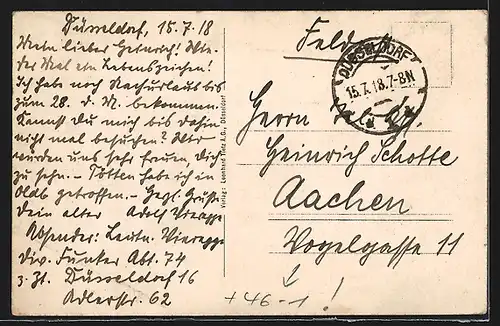 Düsseldorf, 15.7.18
Mein lieber Heinrich! Wie-
der mal ein Lebenszeichen!
Ich habe noch Nachurlaub bis
zum 28. d. M. bekommen.
Kannst Du mich bis dahin
nicht mal besuchen? Wir
würden uns sehr freuen, dich
zu sehn. – Tötten habe ich in
Oldb getroffen. – Hrzl. Grüße
Dein alter Adolf Vieregge
Absender: Leutn. Vieregge
Div. Funker Abt. 74
z. Zt. Düsseldorf 16
Adlerstr. 62
Verlag: Leonhard Tietz A.G., Düsseldorf
DÜSSELDORF
15.7.18.7-8N
Herrn
Heinrich Schotte
Aachen
Vogelgasse 11
+46-1!